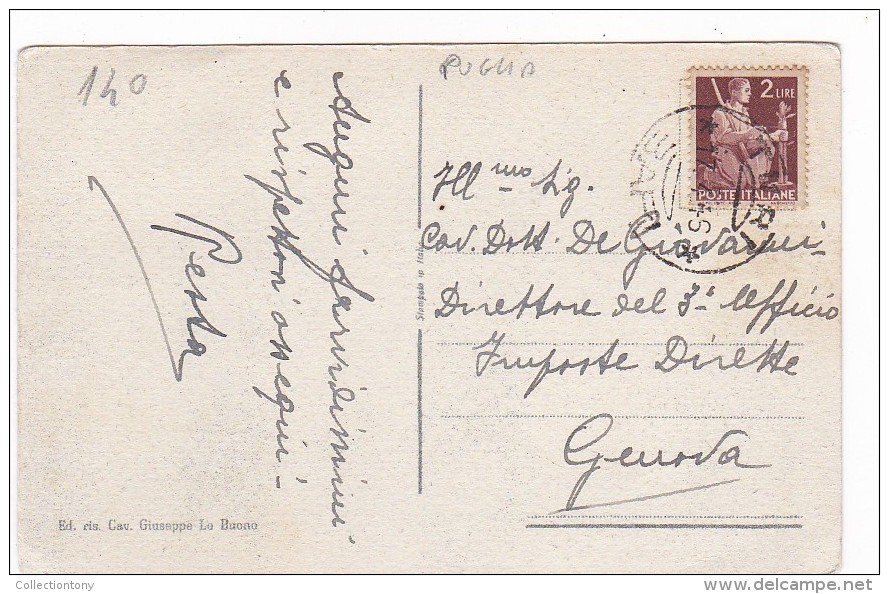 140
PUGLIA
Auguri fervidissimi
e rispettosi ossequi -
Perta
2 LIRE
POSTE ITALIANE
Ill mo Sig.
Cav. Dott. De Giovanni -
Direttore del 3° Ufficio
Imposte Dirette
Genova
Stampato in Italia
Ed. ris. Cav. Giuseppe Lo Buono
Collectiontony
delcampe.net